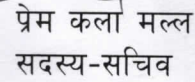 प्रेम कला मल्ल
सदस्य-सचिव